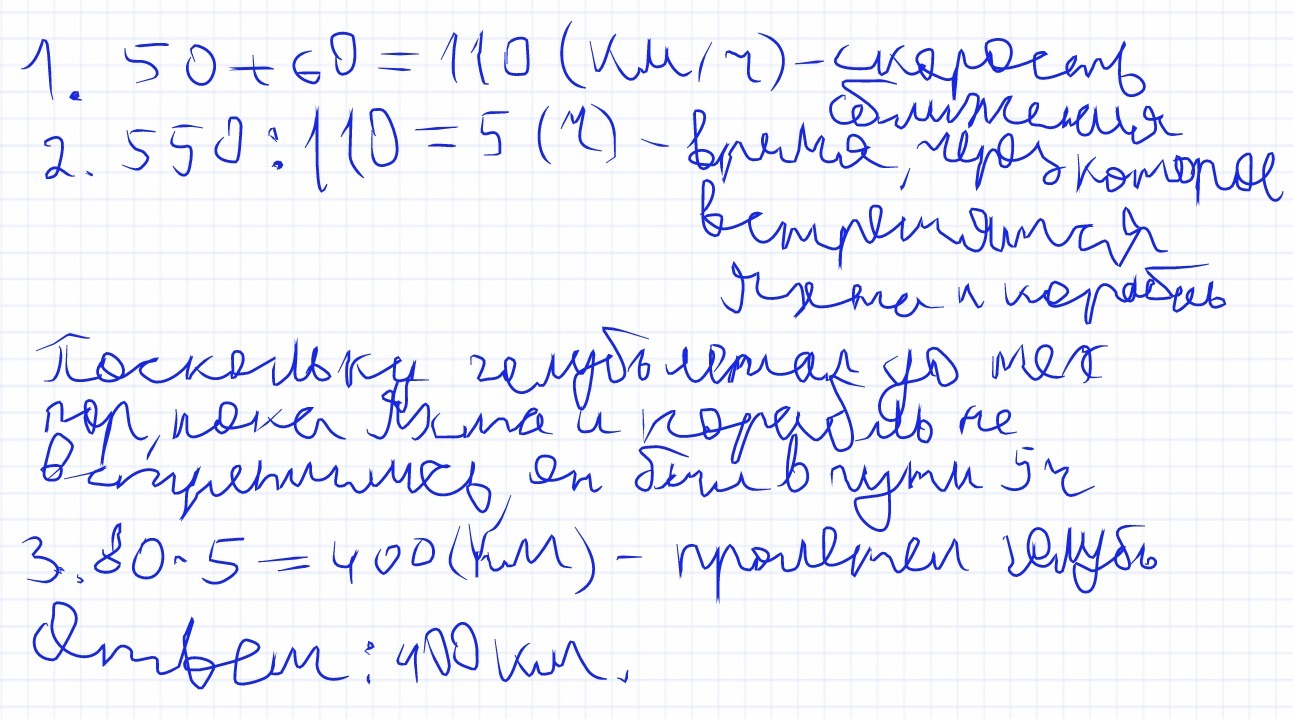 1. 50+60=110 (км/ч) - скорость
сближения
2. 550:110=5 (ч) - время, через которое
встретятся
Яхта и корабль
Поскольку голубь летал до тех
пор, пока Яхта и корабль не
встретились, он был в пути 5 ч
3. 80·5=400 (км) - пролетел голубь
Ответ: 400 км.